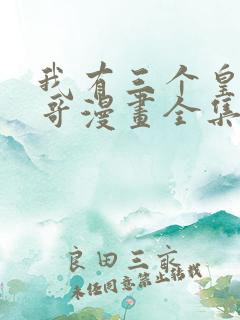 我有三个皇
哥漫畫全集
良田三亩
未经同意禁止转载